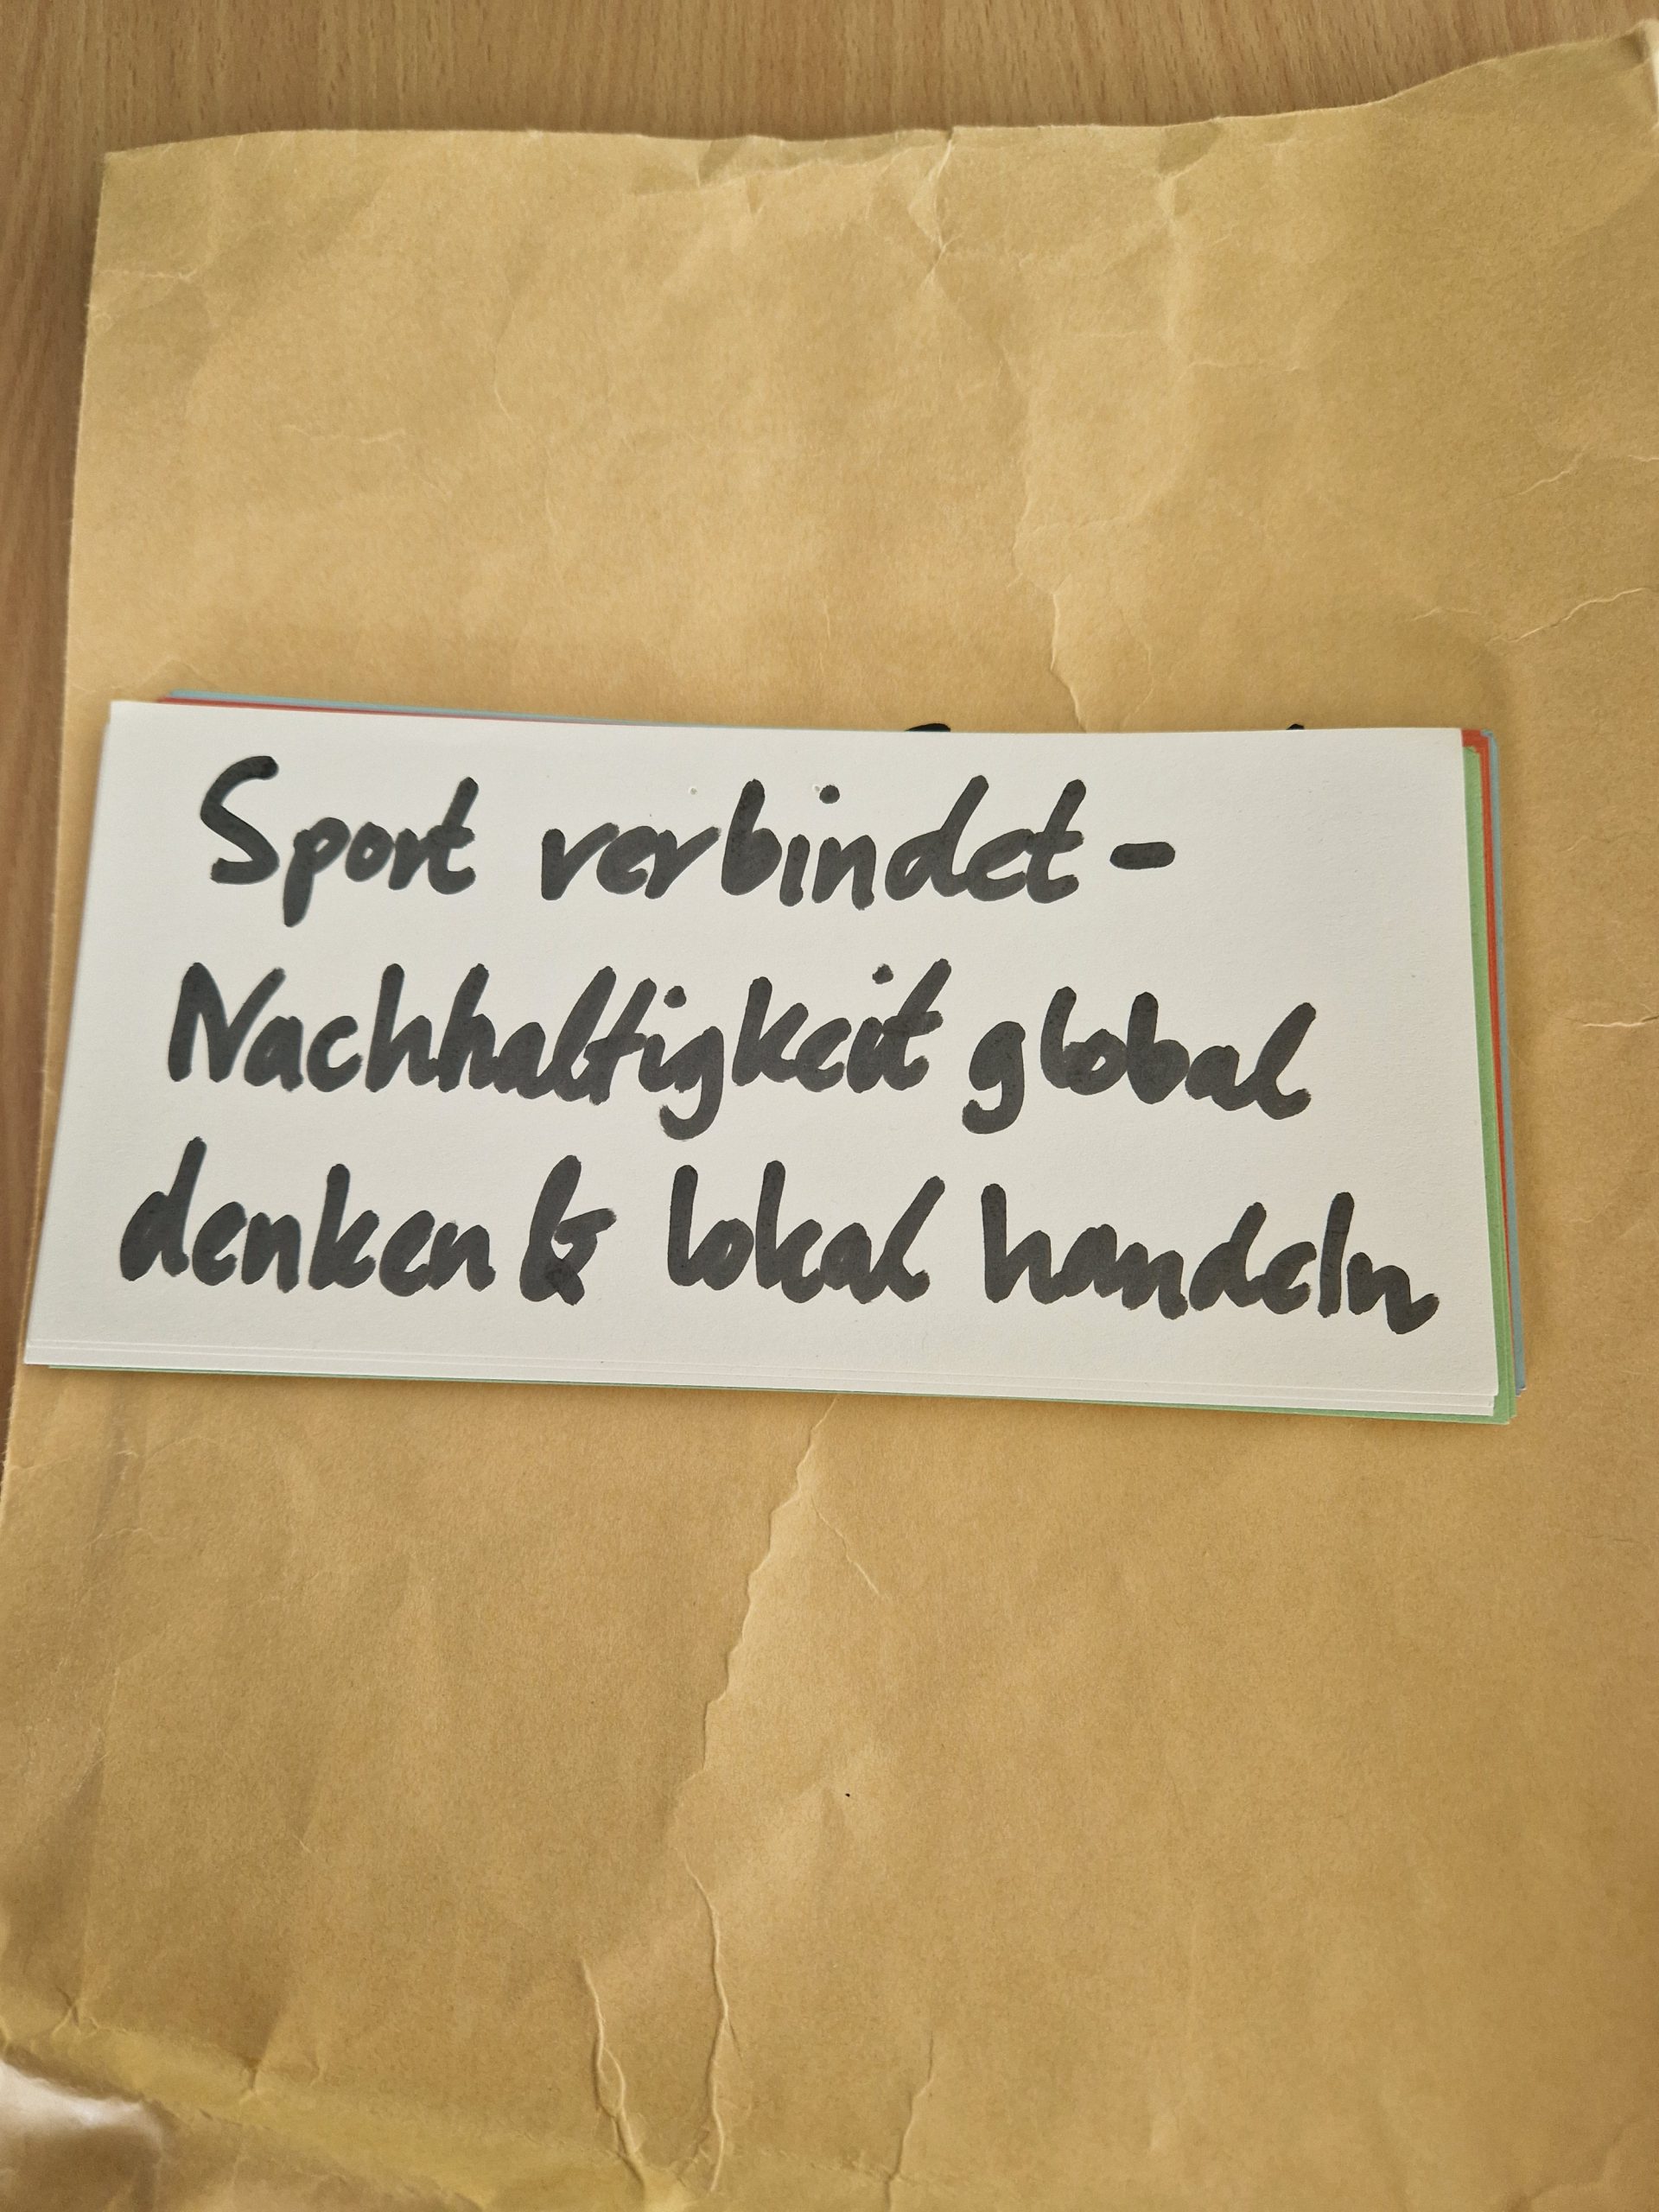 Sport verbindet -
Nachhaltigkeit global
denken & lokal handeln